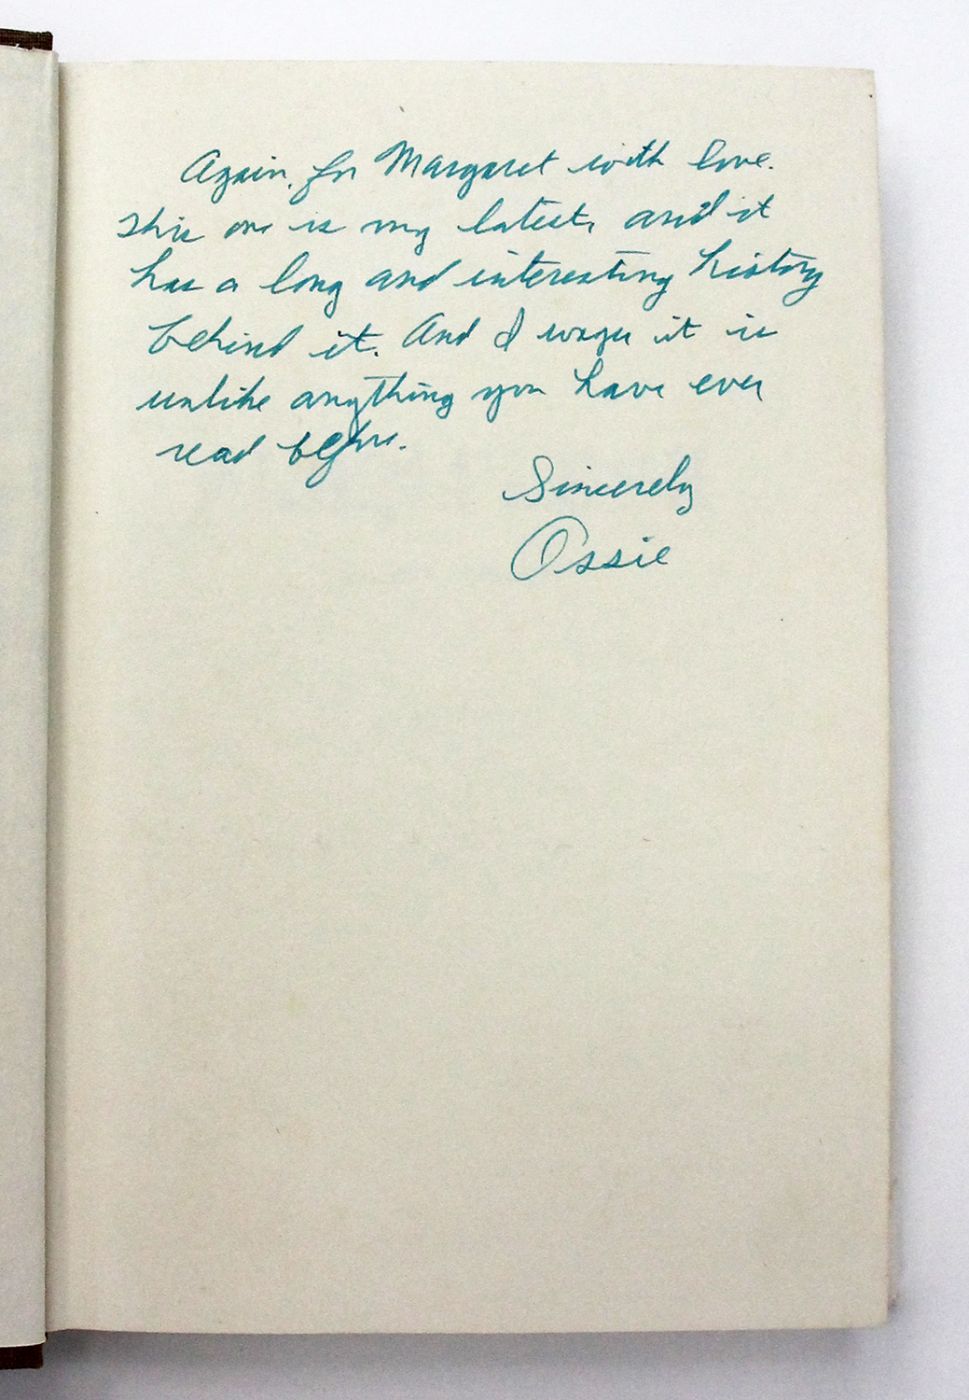 Again, for Margaret with love.
This one is my latest, and it
has a long and interesting history
behind it. And I wager it is
unlike anything you have ever
read before.
Sincerely
Ossie